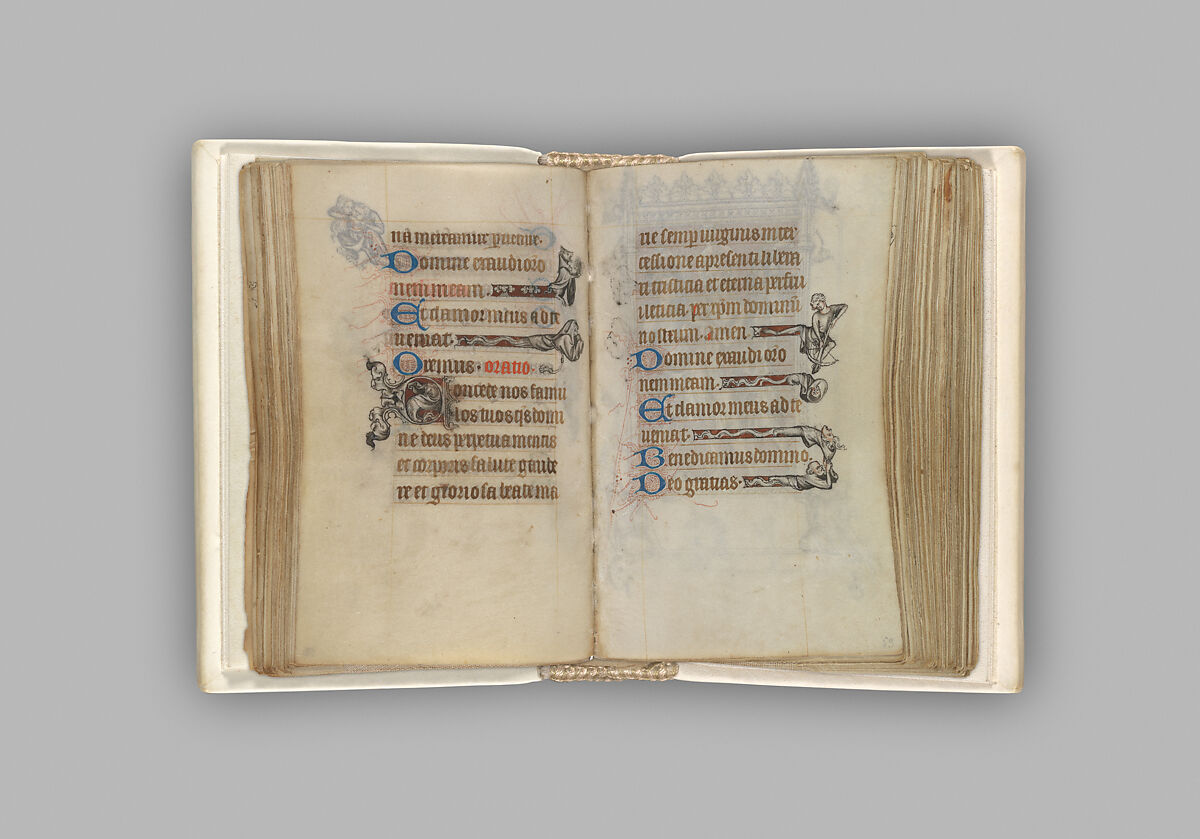 nā mereamur peruenire.
Domine exaudi oro
nem meam.
Et clamor meus ad te
ueniat.
Oremus. oratio.
Concede nos famu
los tuos qs domi
ne deus perpetua mentis
et corporis salute gaude
re et gloriosa beate ma
rie semp uirginis inter
cessione a presenti libera
ri tristicia et eterna perfru
i leticia. per xpm dominū
nostrum. amen.
Domine exaudi oro
nem meam.
Et clamor meus ad te
ueniat.
Benedicamus domino.
Deo gratias.